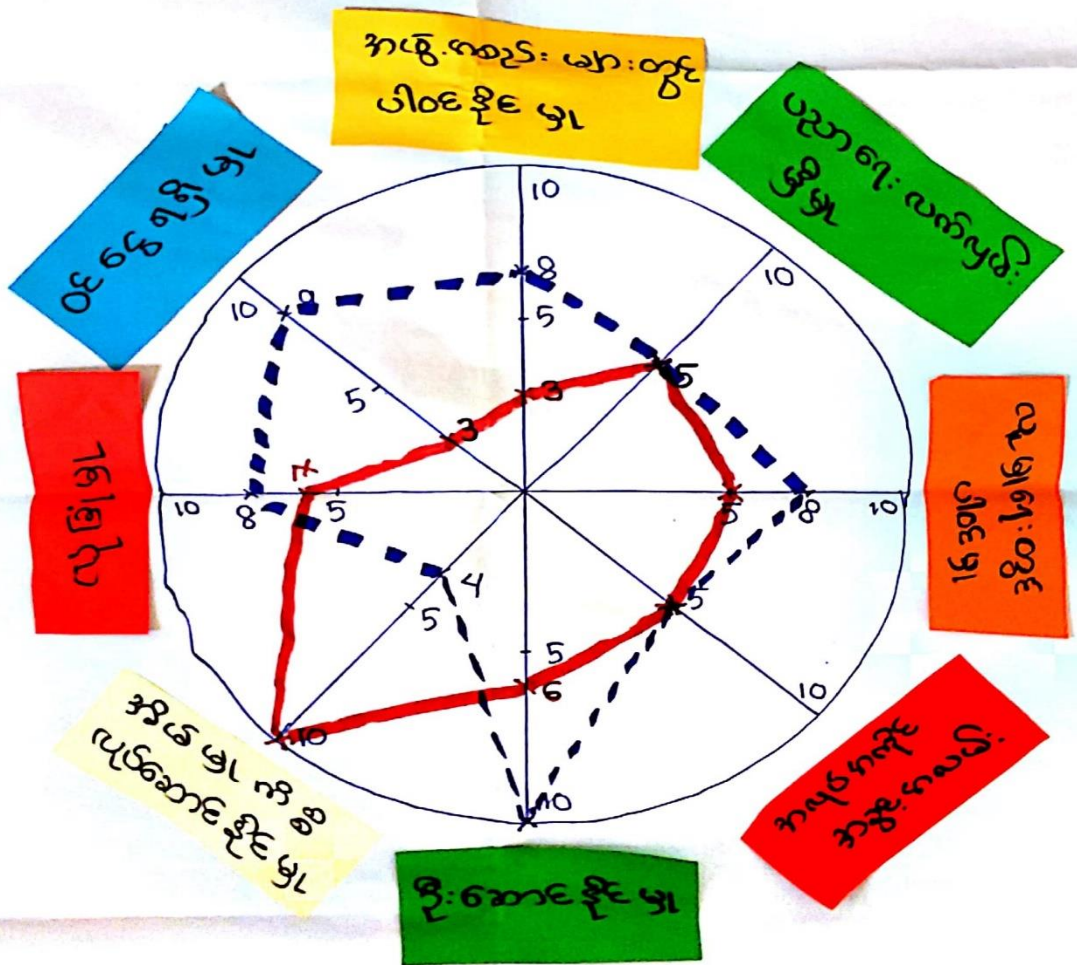 အဖွဲ့အစည်းများတွင်
ပါဝင်နိုင်မှု
ပညာရေး လက်လှမ်း
မှီမှု
လူမှုရေးတွင်
ပါဝင်မှု
အလုပ်အကိုင်
အခွင့်အလမ်း
ဦးဆောင်နိုင်မှု
အိမ်မှုကိစ္စ
လုပ်ဆောင်နိုင်မှု
လုံခြုံမှု
ဝင်ငွေရရှိမှု
10
8
5
3
10
5
5
8
10
5
10
5
6
10
4
5
10
7
5
8
10
3
5
10